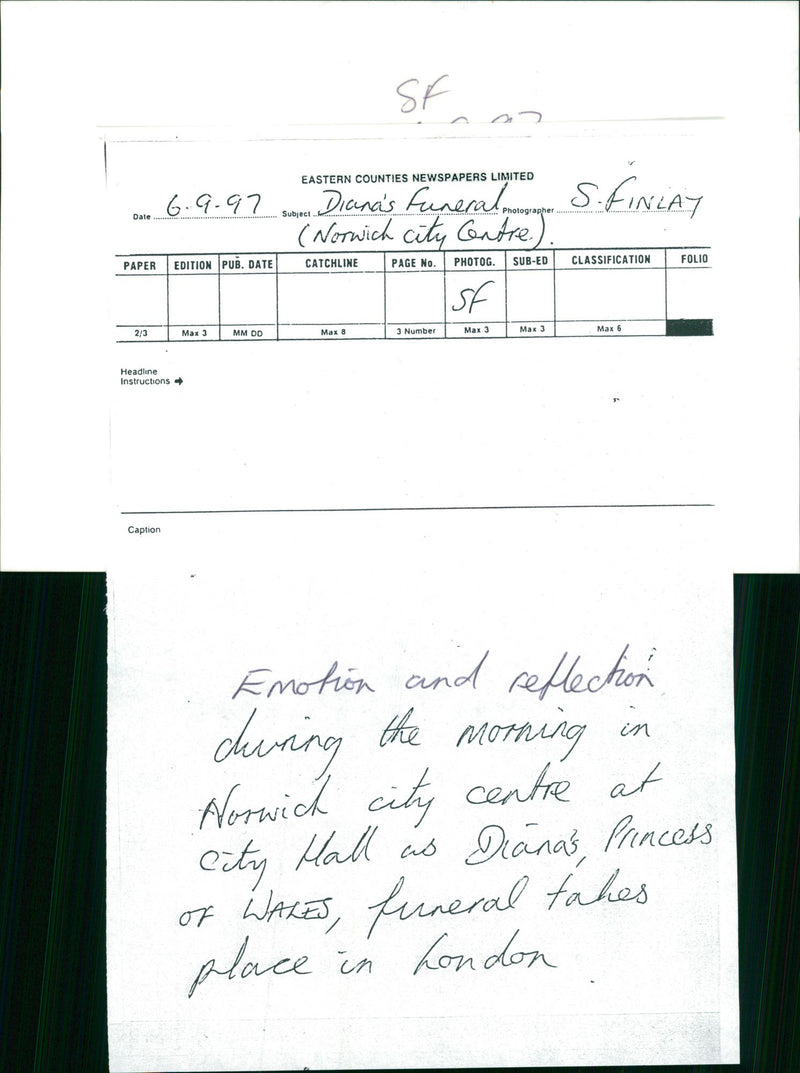 SF
EASTERN COUNTIES NEWSPAPERS LIMITED
Date 6.9.97 Subject Diana's Funeral Photographer S. FINLAY
(Norwich City Centre).
PAPER EDITION PUB. DATE CATCHLINE PAGE No. PHOTOG. SUB-ED CLASSIFICATION FOLIO
SF
2/3 Max 3 MM DD Max 8 3 Number Max 3 Max 3 Max 6
Headline
Instructions →
Caption
Emotion and reflection
during the morning in
Norwich city centre at
City Hall as Diana's, Princess
of WALES, funeral takes
place in London